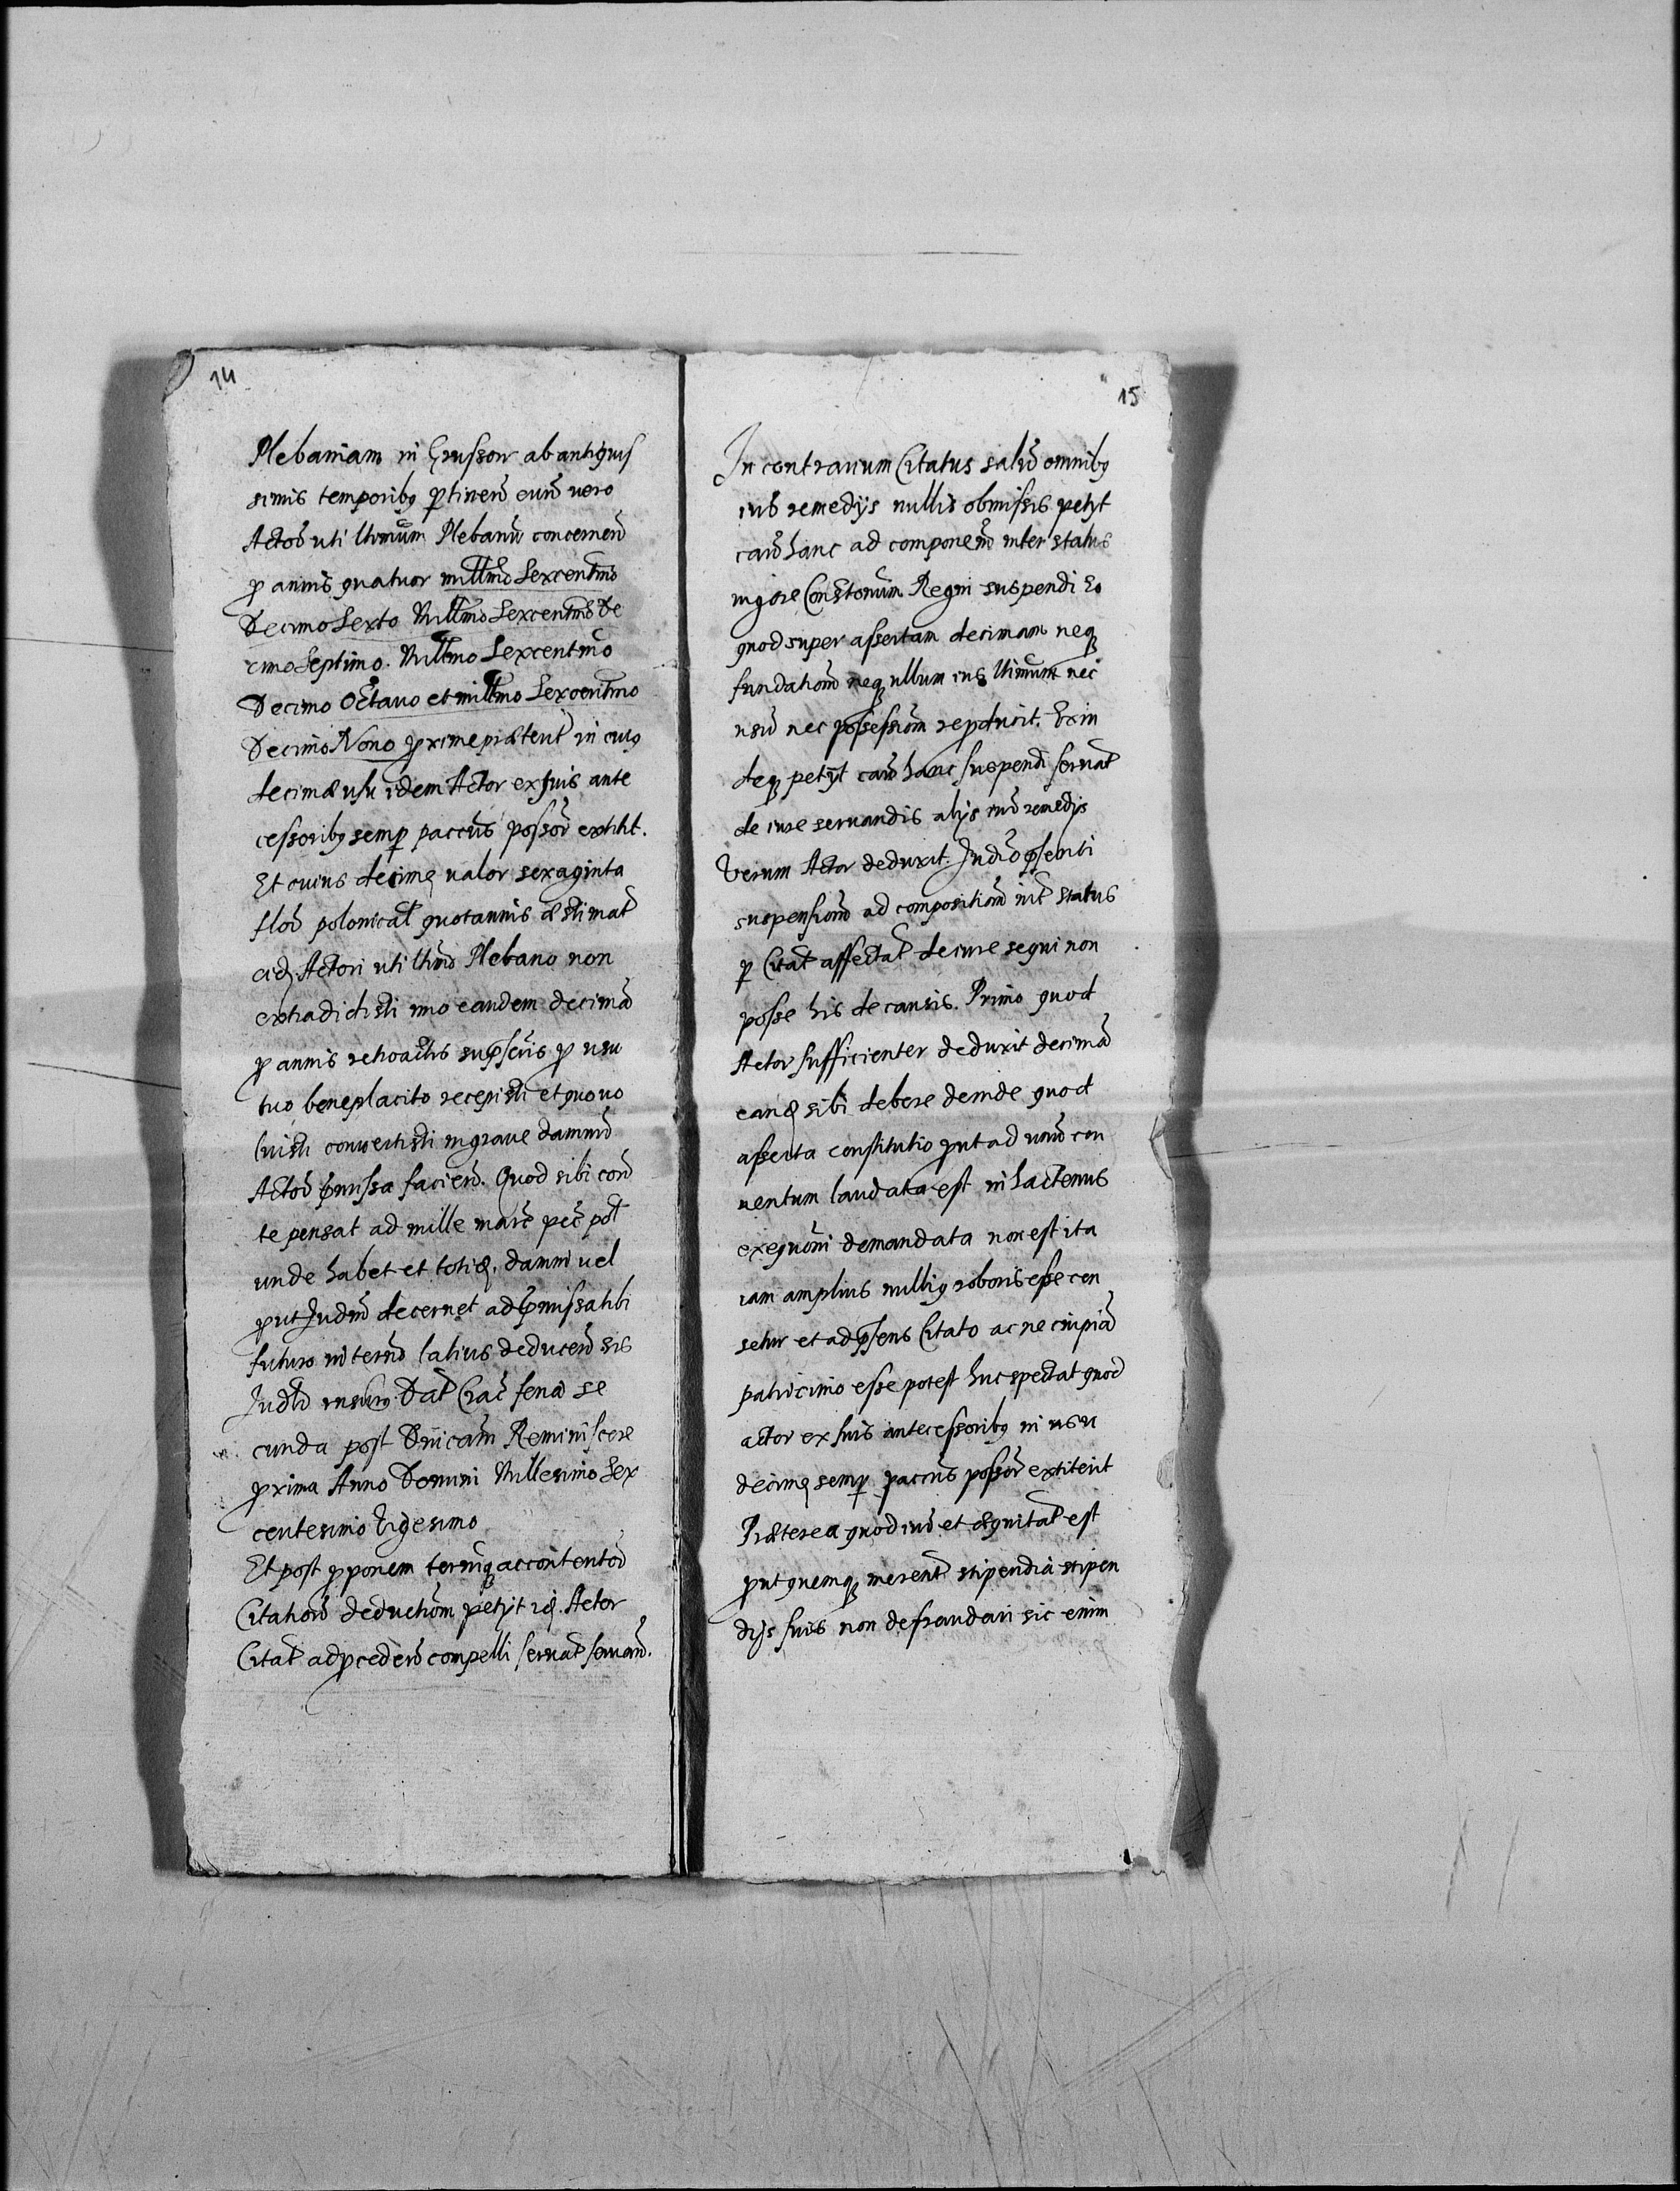 14
Plebaniam in Grussow ab antiquis
simis temporibq ptineñ eum̃ vero
Actoō uti ltimum Plebanū concerneñ
p annis quatuor millmo Sexcentmo
Decimo Sexto Millmo Sexcentmo De
cimo Septimo. Millmo Sexcentmo
Decimo Octavo et millmo Sexcentmo
Decimo Nono pxime præterit in cuiq
decimæ usu idem Actor ex suis ante
cessoribq semp paccus possor extitit.
Et cuius decimę valor sexaginta
flor polonical quotannis æstimat
Actori uti ltimo Plebano non
extradidisti imo eandem decimã
p annis retroactis supsciis p usu
tuo beneplacito recepisti et quo vo
luisti convertisti in grave damnũ
Actoō pmissa facieñ. Quod sibi con
te pensat ad mille marc pec pol
unde habet et totid. damni vel
put Judm decernet ad pmissa tibi
futuro in termo latius deduceñ sis
Dat Crac feria se
cunda post Dnicam Reminiscere
pxima Anno Domini Millesimo Sex
centesimo Vigesimo
Et post pponem terniq ac contentoō
Citationi deductiom petyt id. Actor
Citat ad pcedeñ compelli servat servañ.
15
In contrarium Citatus salvi omnibq
iuris remedijs nullis obmissis petyt
cam hanc ad componeñ inter status
vigore Constonum Regni suspendi Eo
quod super assertam decimam neq
fundationi neq ullum ius ltimum nec
usu nec possessiom repducit. Exin
deq petijt cam hanc suspendi servat
de iure servandis alijs iur remedijs
Verum Actor deduxit. Judio psenti
suspensioni ad compositioni int status
p Citat affectat de iure sequi non
posse his de causis. Primo quod
Actor sufficienter deduxit decimã
eand sibi debere deinde quod
asserta constitutio put ad unũ con
ventum laudata est in hactenus
exequoni demandata non est ita
iam amplius nulliq roboris esse cen
setur et ad psens Citato ac necimpiã
patricinio esse potest huc spectat quod
actor ex suis antecessoribq in usu
decimę semp paccus possor extiterit
Præterea quod iur et æquitat est
put quemq merent stipendia stipen
dijs suis non defraudari sic enim